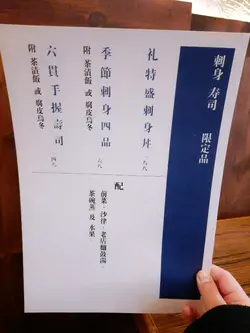 刺身 寿司 限定品
礼特盛刺身丼 一八八
季節刺身四品 六八
附 茶漬飯 或 腐皮烏冬
六貫手握壽司 四八
附 茶漬飯 或 腐皮烏冬
配
前菜、沙律、老店麵豉湯、
茶碗蒸 及 水果